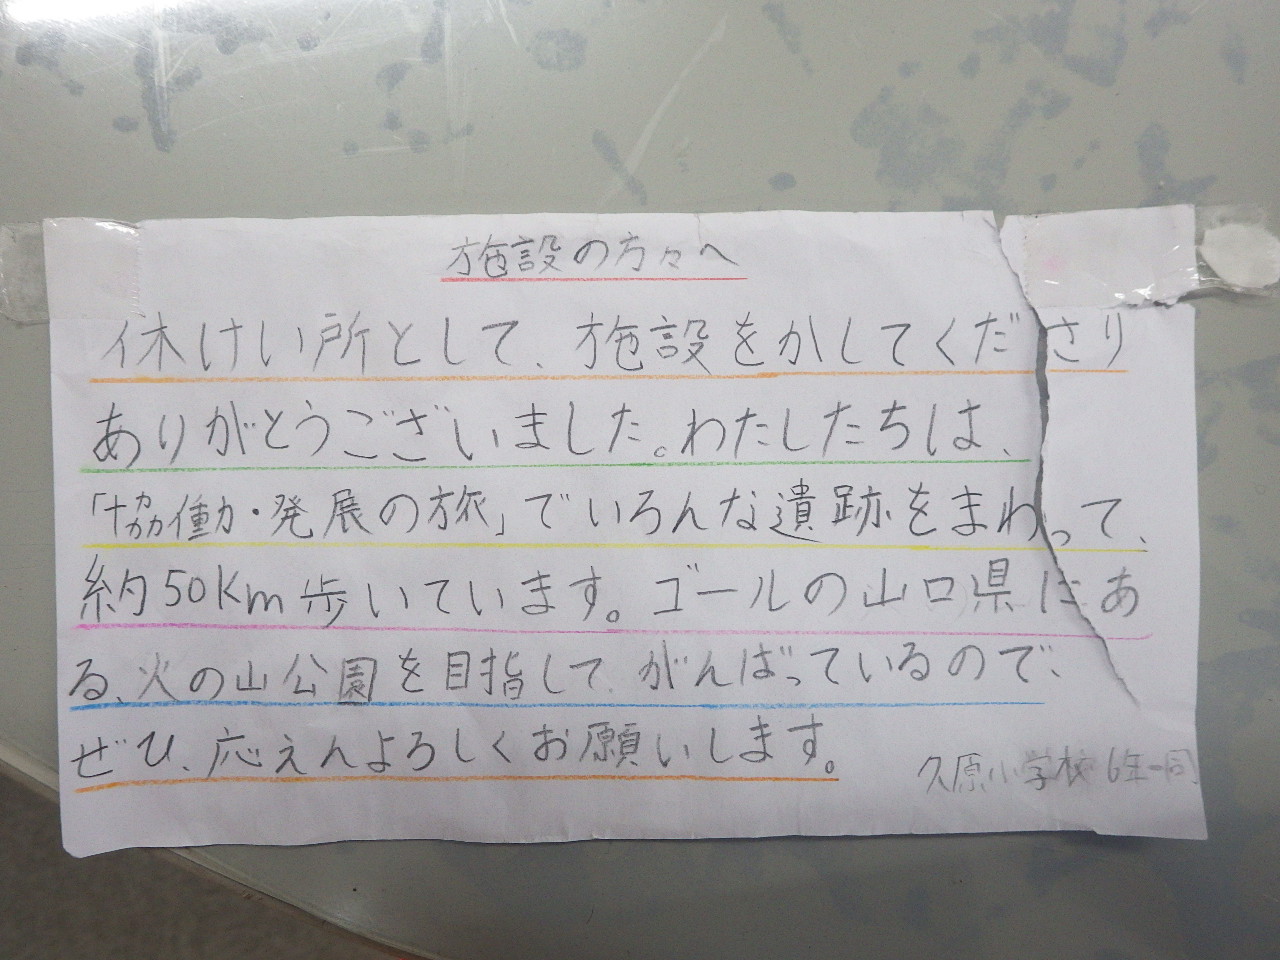 施設の方々へ
休けい所として、施設をかしてくださり
ありがとうございました。わたしたちは、
「協働・発展の旅」でいろんな遺跡をまわって、
約50Km歩いています。ゴールの山口県にあ
る、火の山公園を目指して、がんばっているので、
ぜひ、応えんよろしくお願いします。
久原小学校 6年一同